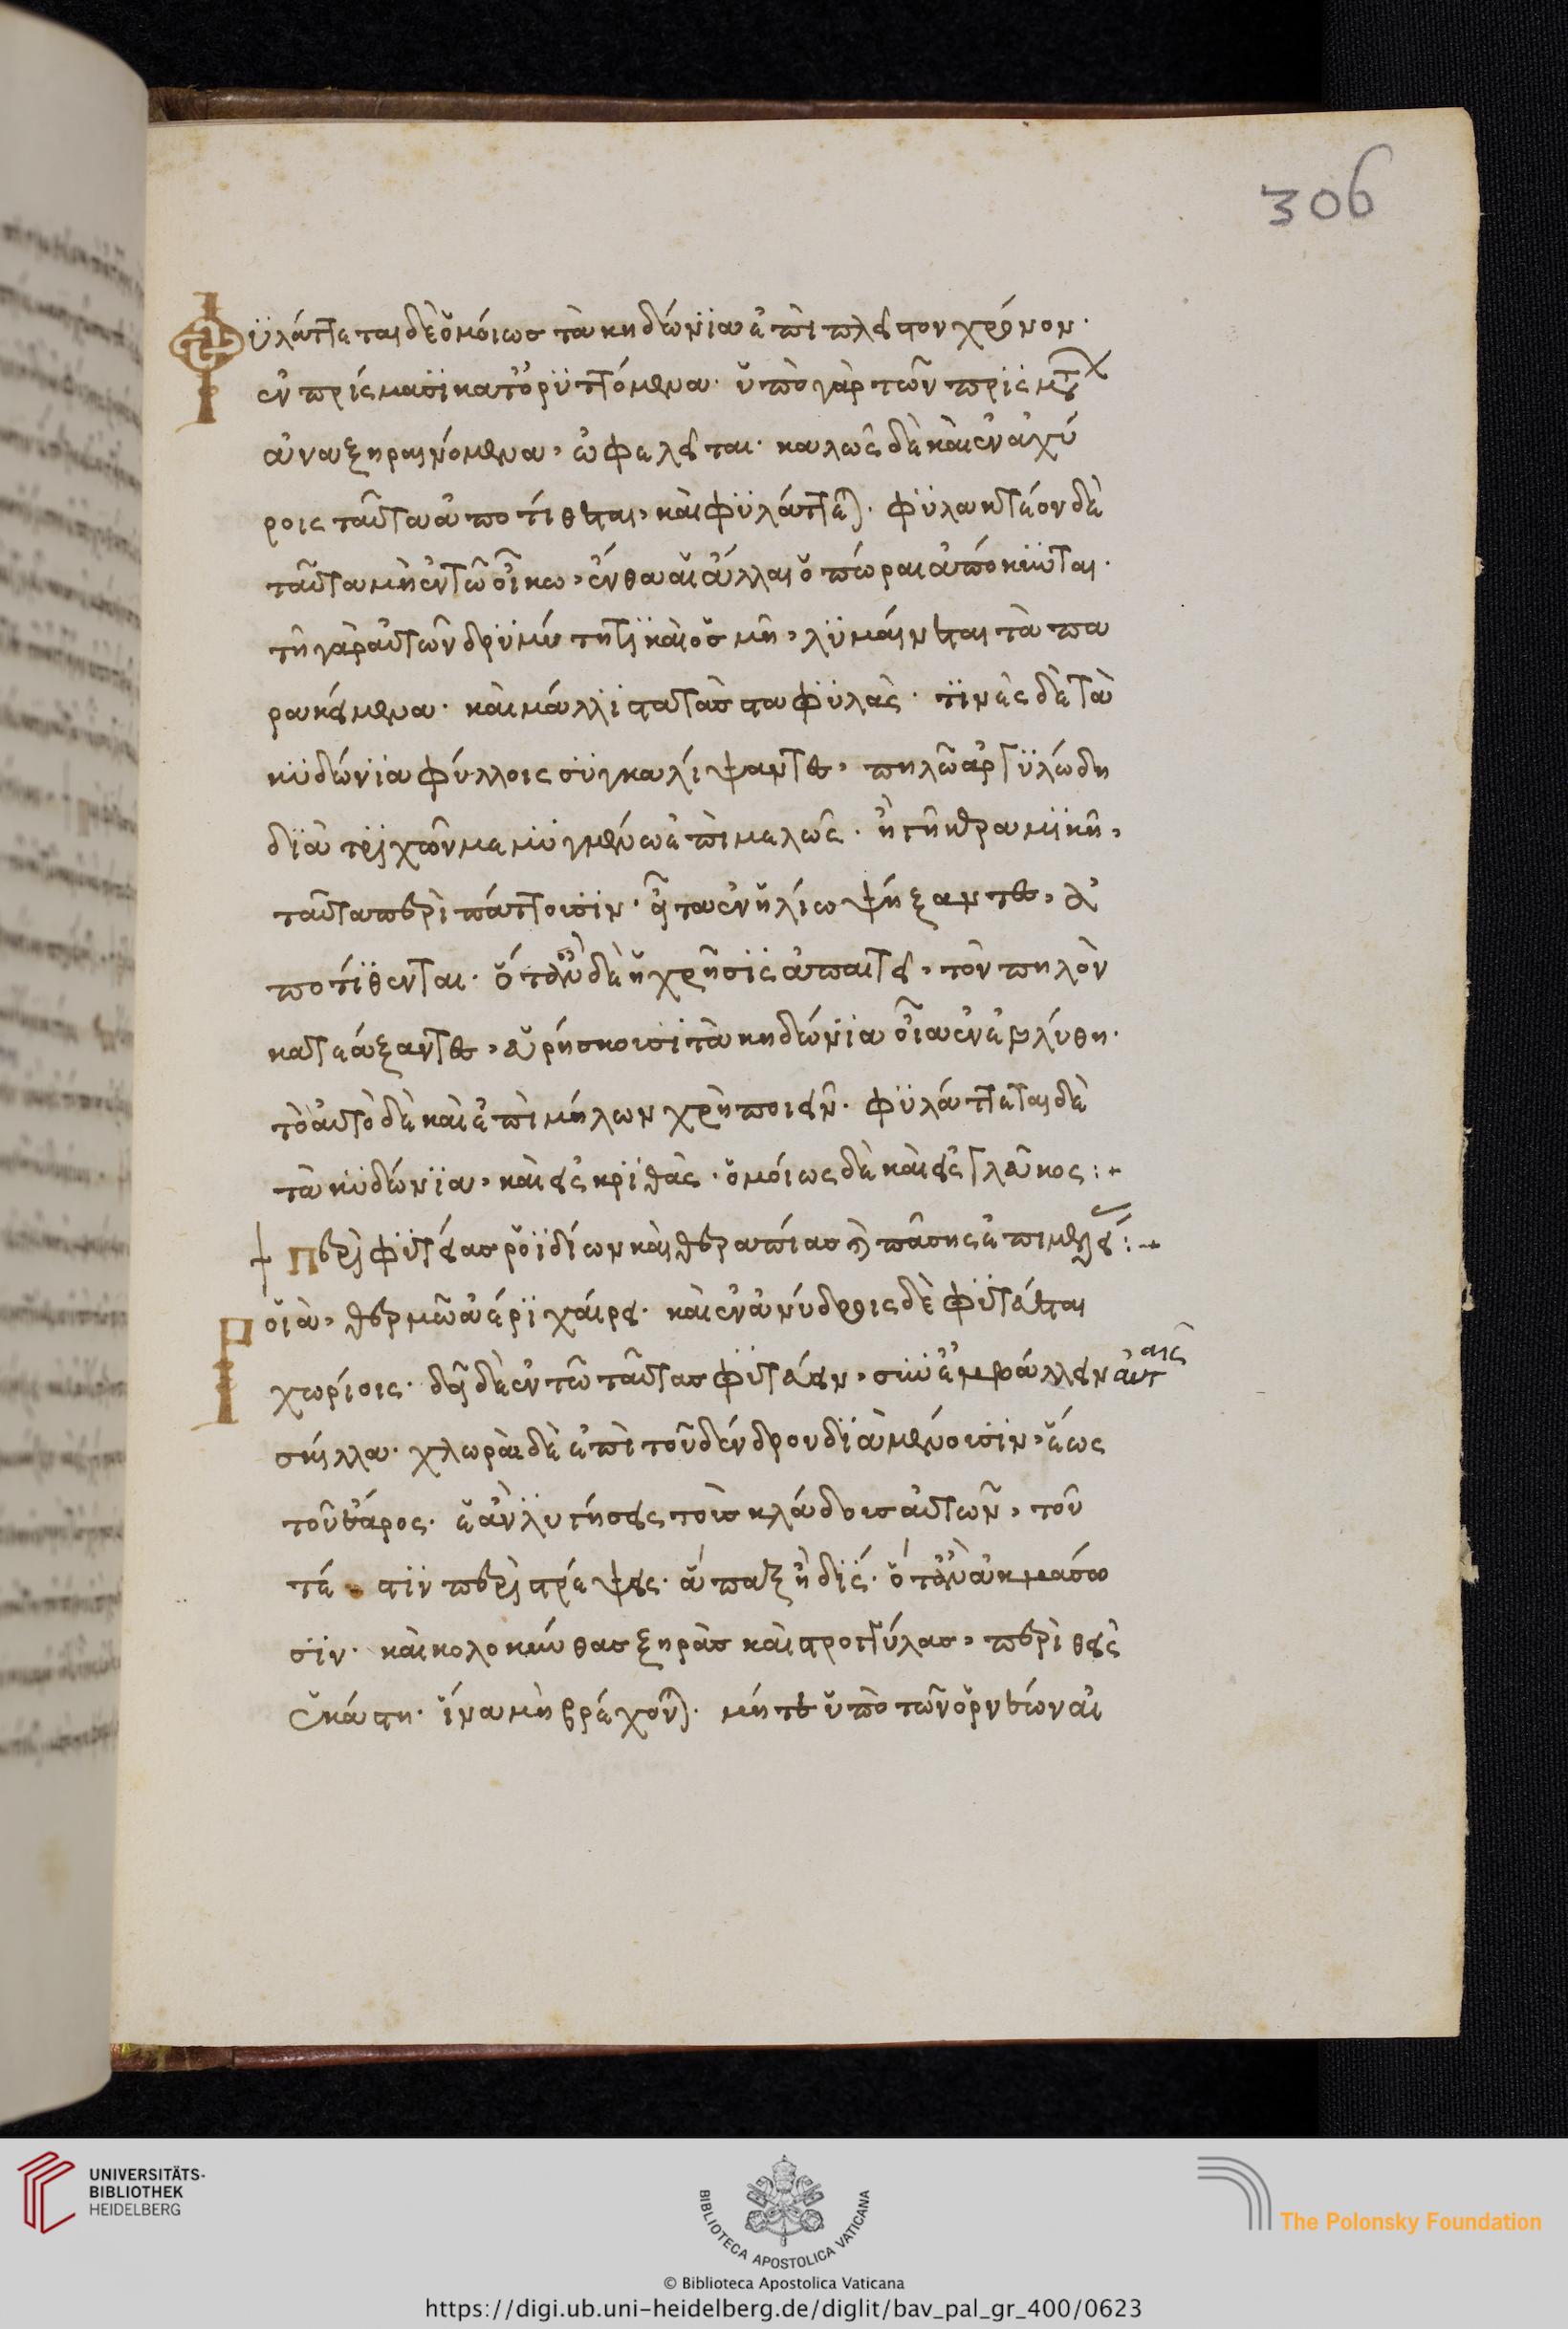 306
Φϋλάττεται δὲ ὁμόιως τὰ κηδώνϊα ἐπὶ πλεῖστον χρόνον·
ἐν πρίσμασϊ κατορϋττόμενα· ὑπὸ γὰρ τῶν πρϊς μτ χ
ἀναξηραινόμενα, ὠφελεῖται· καλῶς δὲ καὶ ἐν ἀχύ
ροις ταῦτα ἀποτίθεται, καὶ φϋλάττε)· φϋλακτέον δὲ
ταῦτα μὴ ἐν τῶ οἴκω, ἔνθα αἱ ἄλλαι ὀπώραι ἀπόκειϋται·
τῆ γὰρ αὐτῶν δρϋμύτητϊ καὶ ὀσμῆ, λϋμαίνεται τὰ πα
ρακείμενα· καὶ μάλλϊστα τὰς σταφϋλὰς· τϊνὲς δὲ τὰ
κϋδώνϊα φύλλοις σϋγκαλίψαντες, πηλῶ ἀργϋλώδη
δϊὰ τρϊχῶν μεμϋγμένω ἐπιμελῶς· ἢ γῆ κεραμϊκῆ,
ταῦτα περιπάττουσϊν· εἶτα ἐν ἡλίω ψήξαντες, ἀ
ποτίθενται· ὅταν δὲ ἡ χρῆσϊς ἀπαιτεῖ, τὸν πηλὸν
κατεάξαντες, εὑρήσκουσϊ τὰ κηδώνϊα οἷα ἐνεβλύθη·
τὸ αὐτὸ δὲ καὶ ἐπὶ μήλων χρὴ ποιεῖν· φϋλάττεται δὲ
τὰ κϋδώνϊα, καὶ εἰς κρϊθὰς· ὁμόιως δὲ καὶ εἰς γλεῦκος :-
Περὶ φϋτείας ροϊδίων καὶ θεραπίας καὶ πάσης ἐπιμελεί :-
Ροιὰ, θερμῶ ἀέρϊ χαίρει· καὶ ἐν ἀνύδροις δὲ φϋτεύεται
χωρίοις· δεῖ δὲ ἐν τῶ ταῦτας φϋτεύειν, συνεμβάλλειν αὐταῖς
σκίλλα· χλωραὶ δὲ ἐπὶ τοῦ δένδρου δϊαμένουσϊν, ἕως
τοῦ ἔαρος· ἐὰν λϋγήσεις τοῖς κλάδοις αὐτῶν, τοῦ
τέστϊν περιστρέψεις· ἅπαξ ἢ δϊς· ὅταν ἀκμάσω
σϊν· καὶ κολοκύνθας ξηρὰς καὶ στρογγύλας, περιθεὶς
ἑκάστη· ἵνα μὴ βρέχον)· μήτε ὑπὸ τῶν ὀρνέων αἱ
UNIVERSITÄTS-
BIBLIOTHEK
HEIDELBERG
BIBLIOTECA APOSTOLICA VATICANA
The Polonsky Foundation
© Biblioteca Apostolica Vaticana
https://digi.ub.uni-heidelberg.de/diglit/bav_pal_gr_400/0623